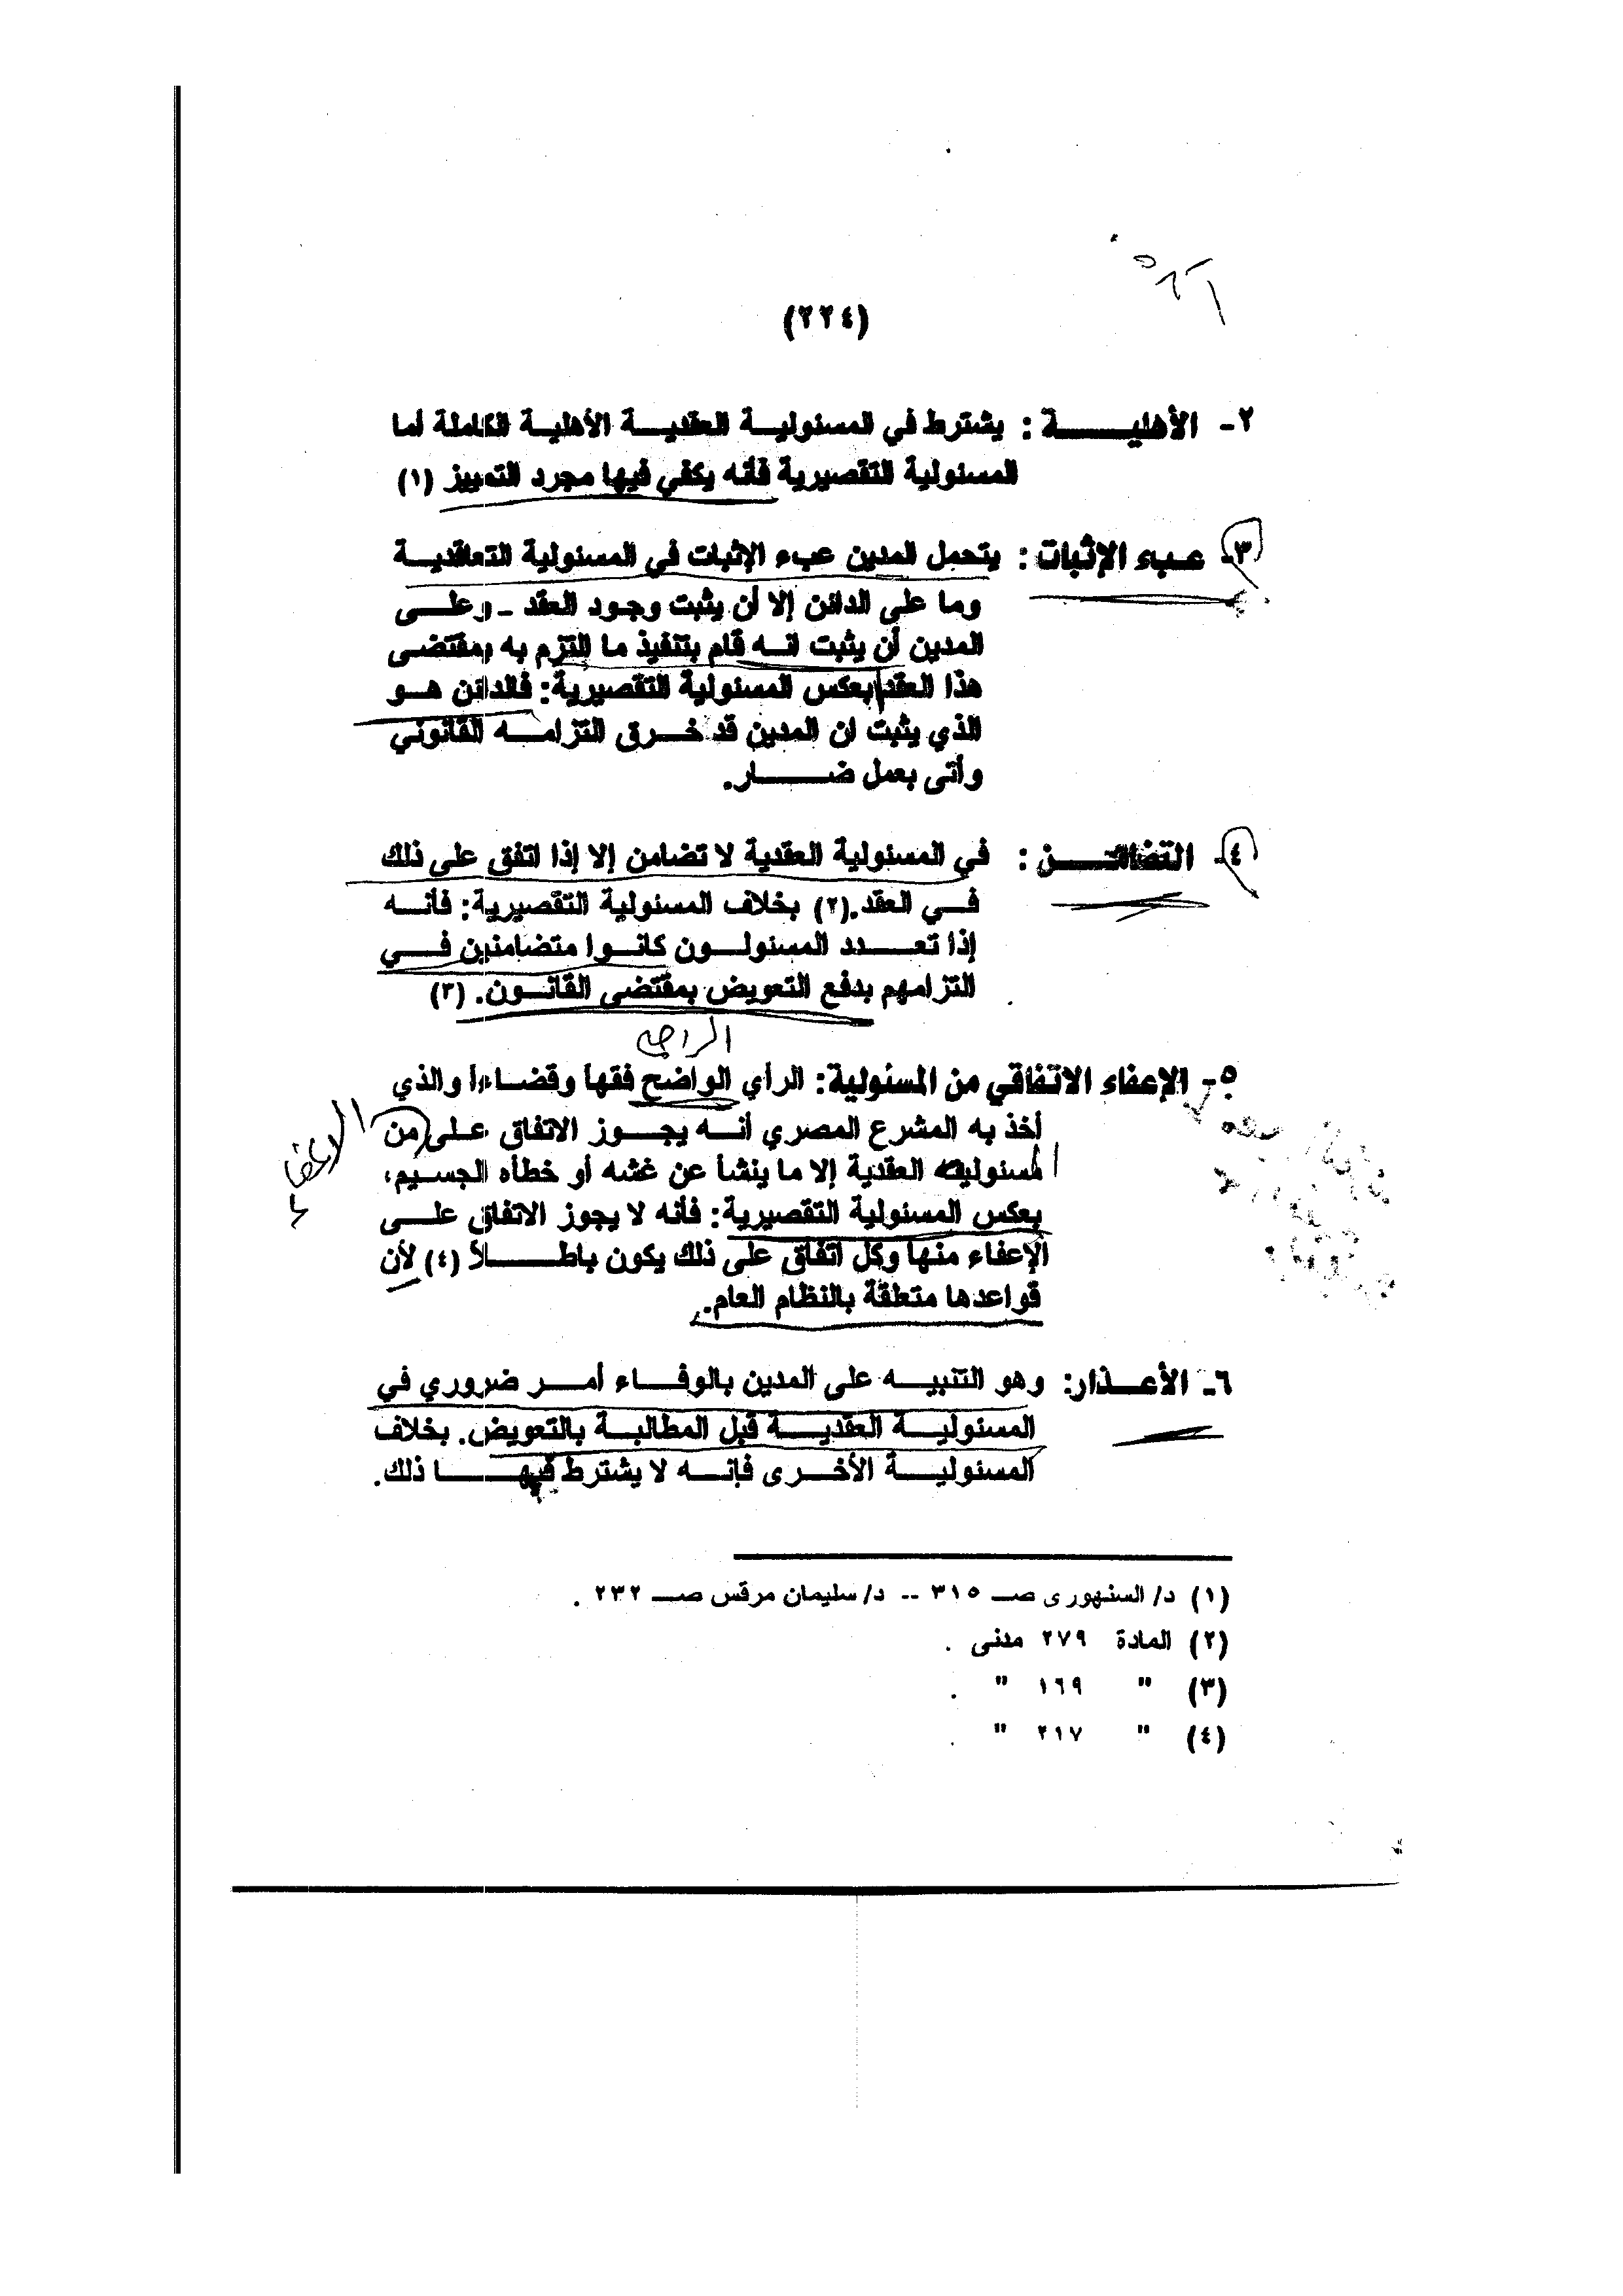 (٢٢٤)
٢- الأهليـــــة : يشترط في المسئوليـة العقديـــة الأهليـة الكاملة أما
المسئولية التقصيرية فأنه يكفي فيها مجرد التمييز (١)
٣- عبء الإثبات : يتحمل المدين عبء الإثبات في المسئولية التعاقديـة
وما على الدائن إلا أن يثبت وجود العقد - وعلـى
المدين أن يثبت انـه قام بتنفيذ ما التزم به بمقتضى
هذا العقد بعكس المسئولية التقصيرية: فالدائن هـو
الذي يثبت ان المدين قد خـرق التزامـه القانوني
وأتى بعمل ضـــــار.
٤- التضامـــن : في المسئولية العقدية لا تضامن إلا إذا اتفق على ذلك
فـي العقد.(٢) بخلاف المسئولية التقصيرية: فأنـه
إذا تعـــدد المسئولـون كانـوا متضامنين فـي
التزامهم بدفع التعويض بمقتضى القانـون. (٣)
الراجح
٥- الإعفاء الاتفاقي من المسئولية: الرأي الواضح فقهاً وقضـاءاً والذي
أخذ به المشرع المصري أنـه يجـوز الاتفاق علـى من
الاعفاء
مسئوليته العقدية إلا ما ينشأ عن غشه أو خطأه الجسـيم،
بعكس المسئولية التقصيرية: فأنه لا يجوز الاتفاق علـى
الإعفاء منها وكل اتفاق على ذلك يكون باطـــلاً (٤) لأن
قواعدها متعلقة بالنظام العام.
٦- الأعـذار: وهو التنبيـه على المدين بالوفـاء أمـر ضروري في
المسئوليـة العقديـة قبل المطالبـة بالتعويض. بخلاف
المسئوليـة الأخـرى فإنـه لا يشترط فيهـــا ذلك.
(١) د/ السنهورى صـ ٣١٥ -- د/ سليمان مرقس صـ ٢٣٢ .
(٢) المادة ٢٧٩ مدنى .
(٣) " ١٦٩ " .
(٤) " ٢١٧ " .